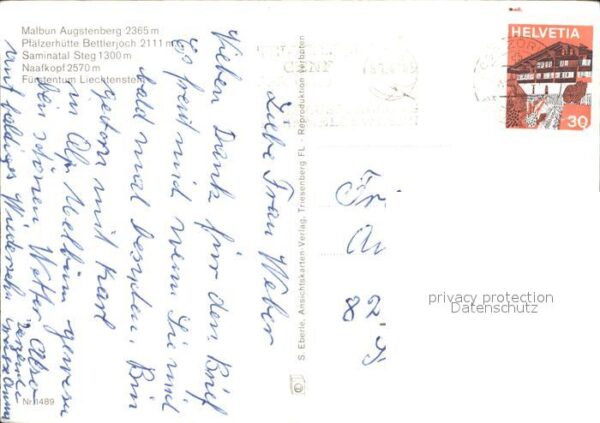 Malbun Augstenberg 2365 m
Pfälzerhütte Bettlerjoch 2111 m
Saminatal Steg 1300 m
Naafkopf 2570 m
Fürstentum Liechtenstein
HELVETIA
30
Liebe Frau Weber
Vielen Dank für den Brief
Es freut mich wenn Sie mich
bald mal besuchen. Bin
gestern mit Karl
in Alp Melbun gewesen
Bei schönem Wetter. Also
auf baldiges Wiedersehn
S. Eberle, Ansichtskarten-Verlag, Triesenberg FL - Reproduktion verboten
Fr.
82
privacy protection
Datenschutz
Nr. 1489